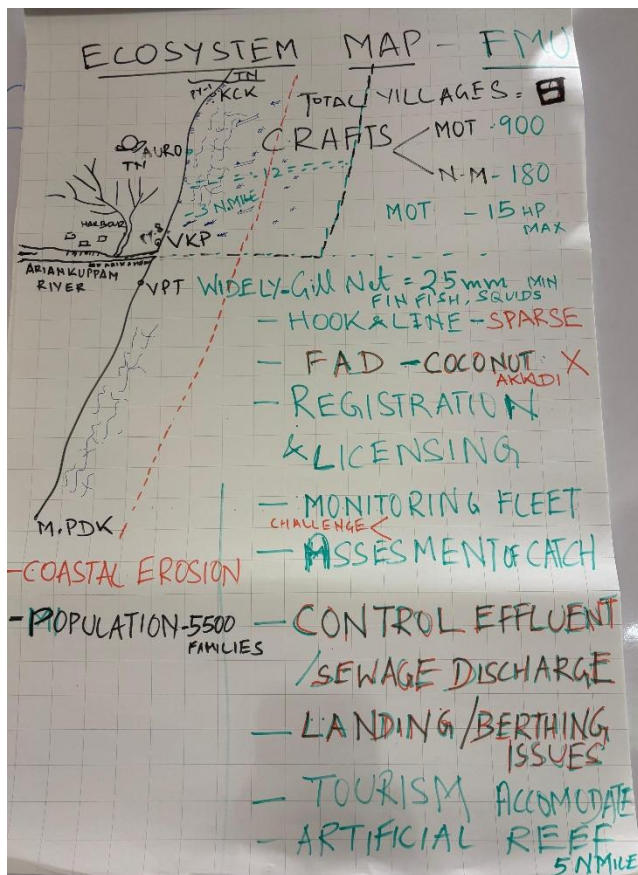 ECOSYSTEM MAP - FMU
TN
PY-1
KCK
TOTAL VILLAGES =
CRAFTS
MOT - 900
N-M - 180
AURO
TN
12
3 N.MILE
MOT - 15 HP
MAX
HARBOUR
PY-3
VKP
ARIANKUPPAM
RIVER
VPT
WIDELY-Gill Net = 25mm MIN
FIN FISH, SQUIDS
- HOOK & LINE - SPARSE
- FAD - COCONUT X
AKKADI
- REGISTRATION
& LICENSING
- MONITORING FLEET
CHALLENGE <
- ASSESMENT OF CATCH
M.PDK
- COASTAL EROSION
- POPULATION - 5500
FAMILIES
- CONTROL EFFLUENT
/SEWAGE DISCHARGE
- LANDING/BERTHING
ISSUES
- TOURISM ACCOMUDATE
- ARTIFICIAL REEF
5 N MILE